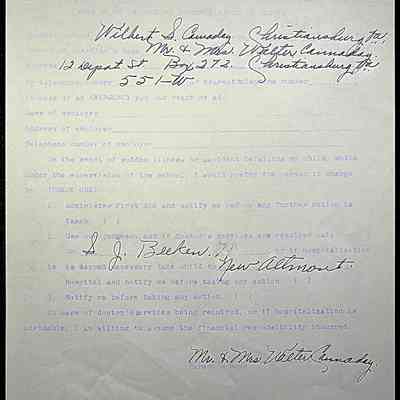 Wilbert S. Cannaday Christiansburg Va.
Mr. & Mrs. Walter Cannaday
12 Depot St Box 272. Christiansburg Va
551-W
Name of employer
Address of employer
Telephone number of employer
In the event of sudden illness or accident befalling my child, while
under the supervision of the school, I would prefer the person in charge
to: (CHECK ONE)
1. Administer first aid and notify me before any further action is
taken. ( )
2. Use own judgment and if doctor's services are required call
S. J. Beeken. or if hospitalization
is deemed necessary take child to New Altmont.
Hospital and notify me before taking any action. ( )
3. Notify me before taking any action. ( )
In case of doctor's services being required, or if hospitalization is
advisable, I am willing to assume the financial responsibility incurred.
Mr. & Mrs Walter Cannaday.